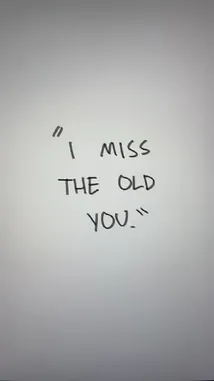 "I MISS
THE OLD
YOU."